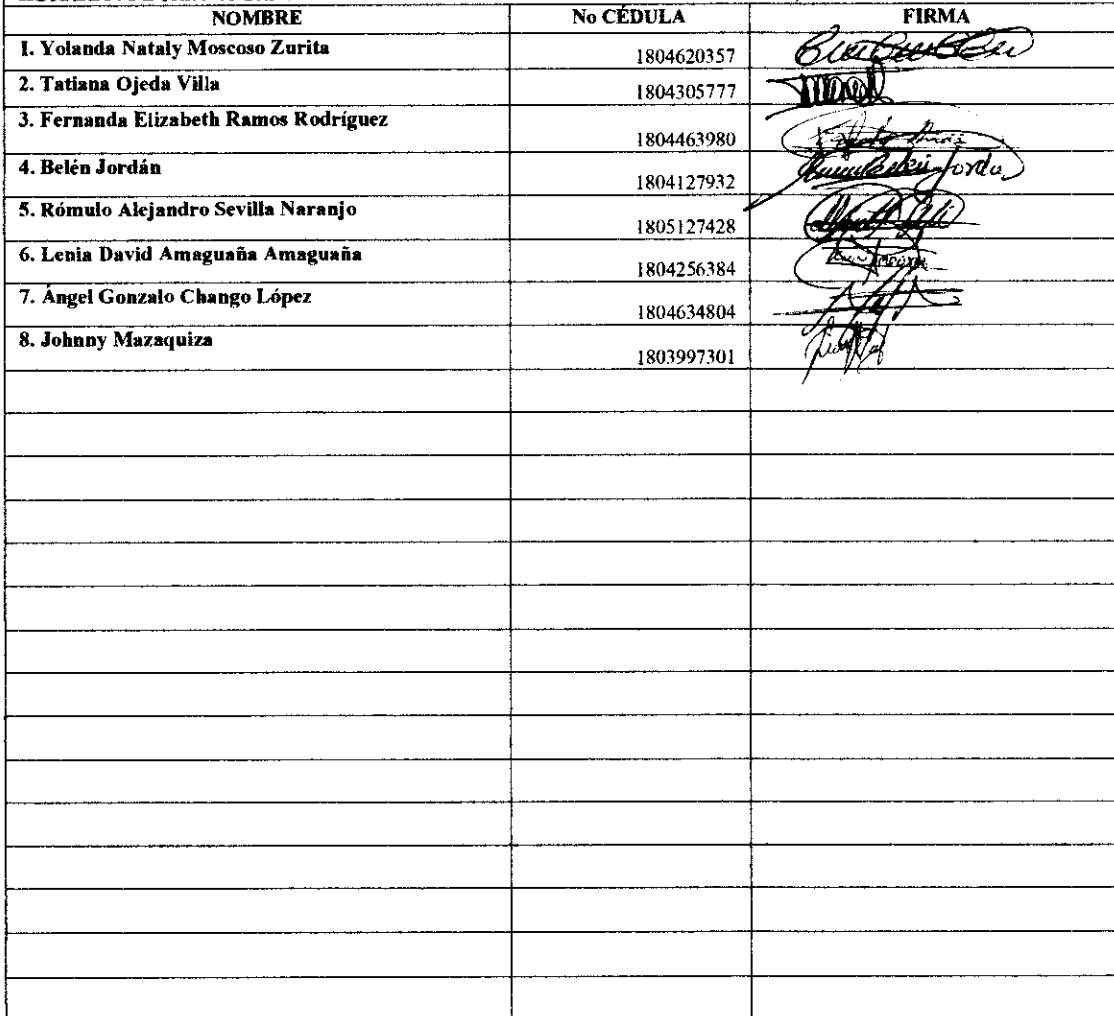 NOMBRE No CÉDULA FIRMA
1. Yolanda Nataly Moscoso Zurita 1804620357
2. Tatiana Ojeda Villa 1804305777
3. Fernanda Elizabeth Ramos Rodríguez 1804463980
4. Belén Jordán 1804127932 Jordan
5. Rómulo Alejandro Sevilla Naranjo 1805127428
6. Lenia David Amaguaña Amaguaña 1804256384
7. Ángel Gonzalo Chango López 1804634804
8. Johnny Mazaquiza 1803997301